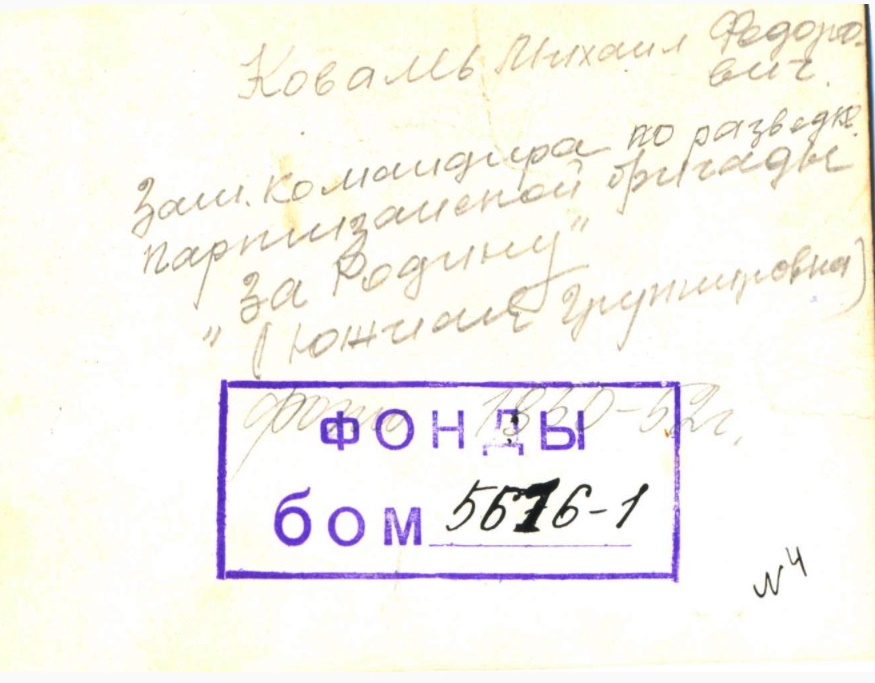 Коваль Михаил Федоро-
вич.
Зам. командира по разведке
партизанской бригады
"За Родину"
(южная группировка)
фото 1950-52г.
ФОНДЫ
бом 5676-1
N4